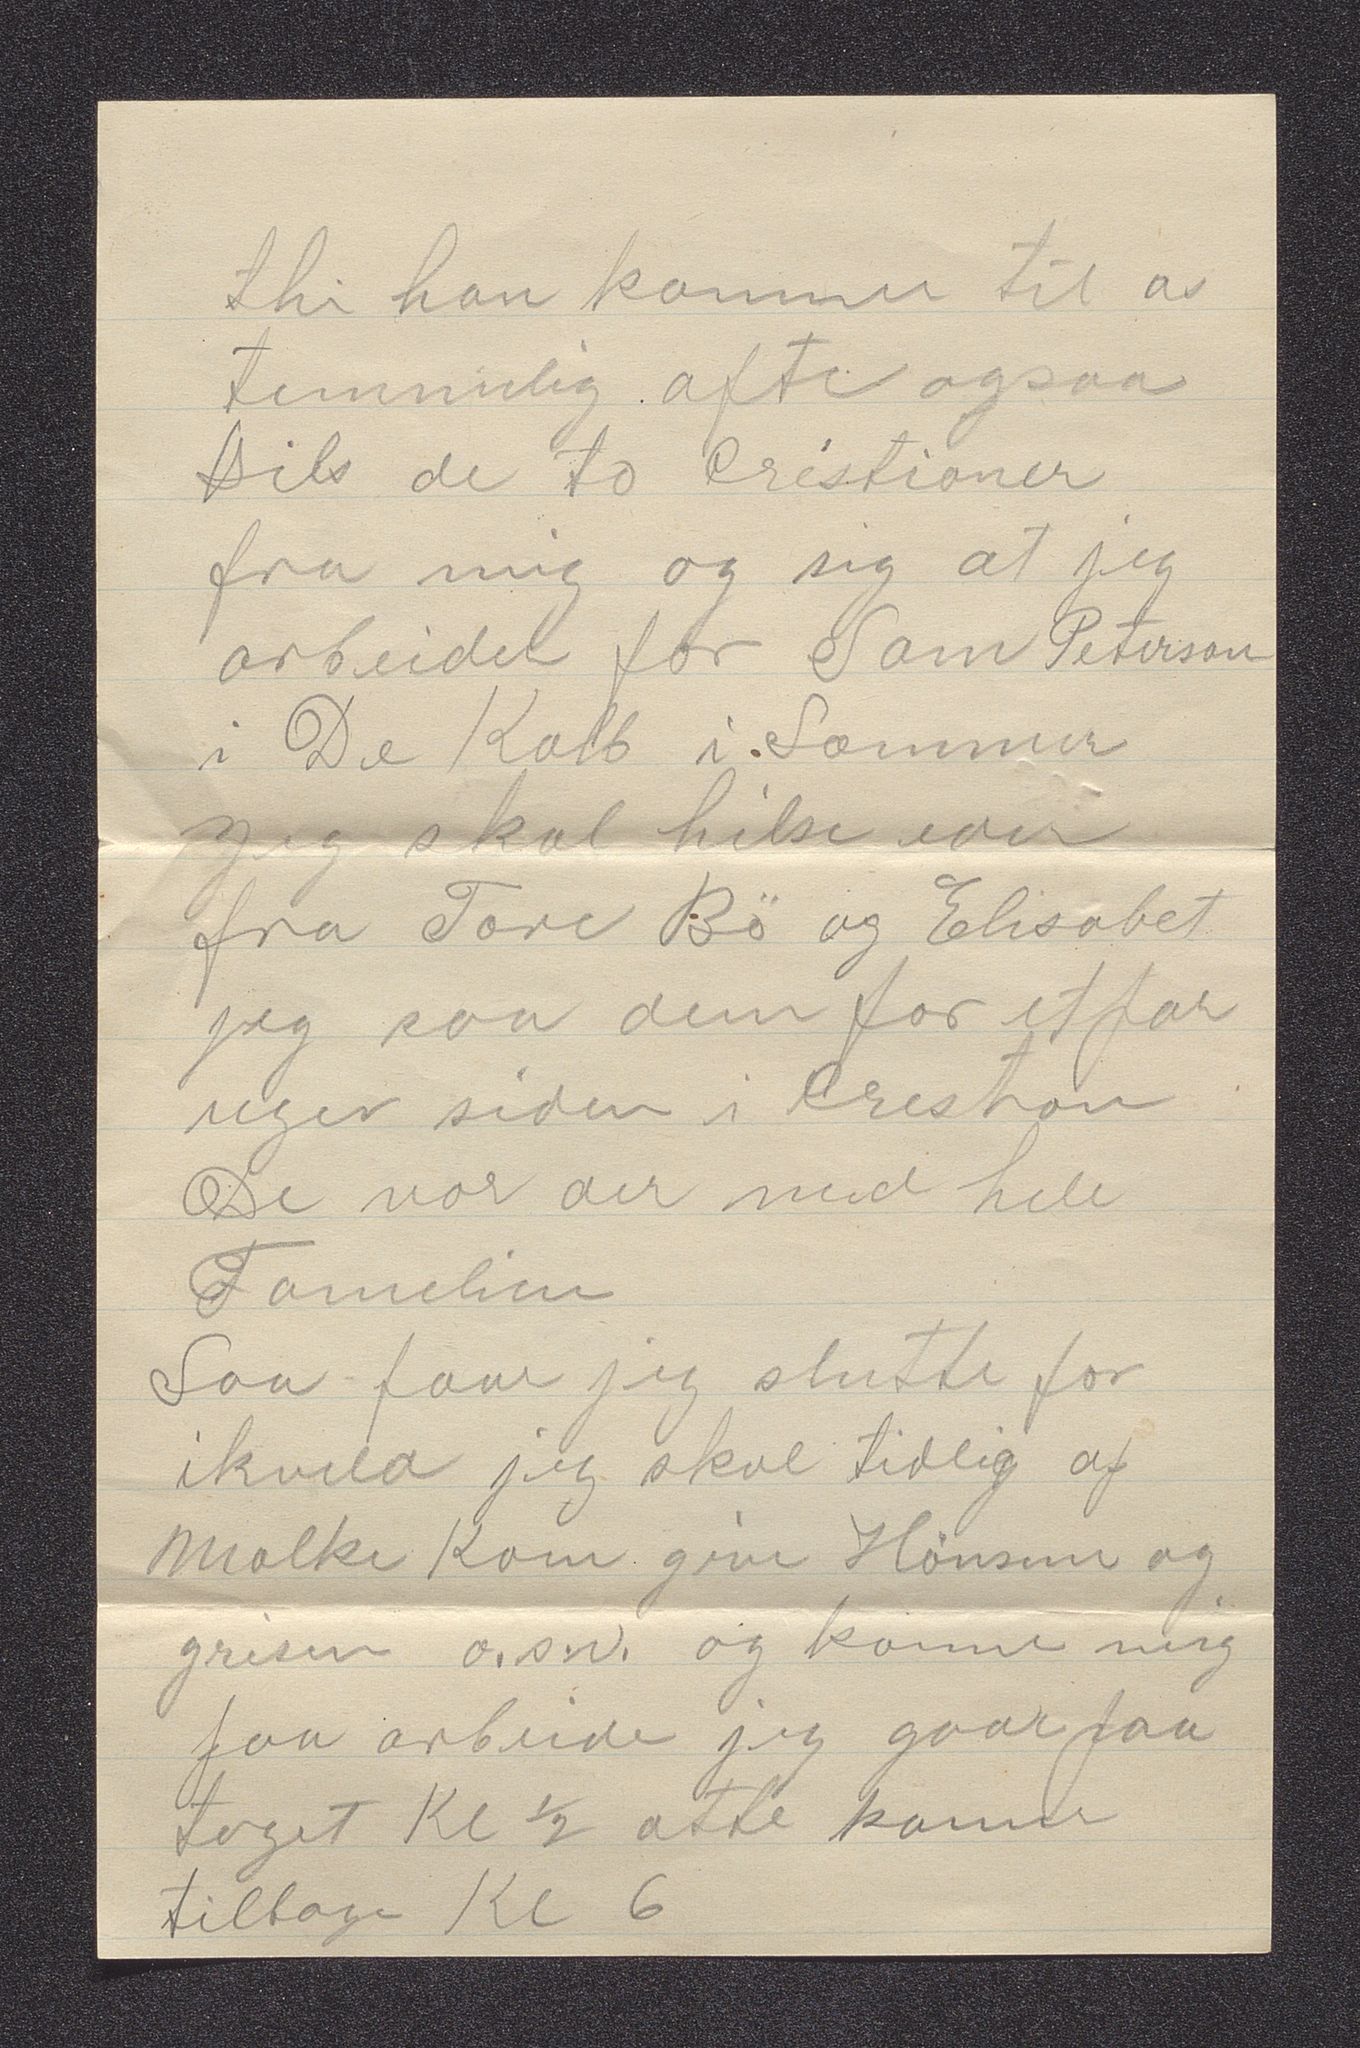 thi han kommer til os
temmelig ofte ogsaa
Hils de to Cristioner
fra mig og sig at jeg
arbeider for Sam Peterson
i De Kalb i Sommer
Jeg skal hilse eder
fra Tore Bö og Elisabet
jeg saa dem for et par
uger siden i Creston
De var der med hele
Famelien
Saa faar jeg slutte for
ikveld jeg skal tidlig op
Molke Kom give Hönsene og
grisen o.s.v. og komme mig
paa arbeide jeg gaar paa
toget Kl 1/2 otte komme
tilbage Kl 6